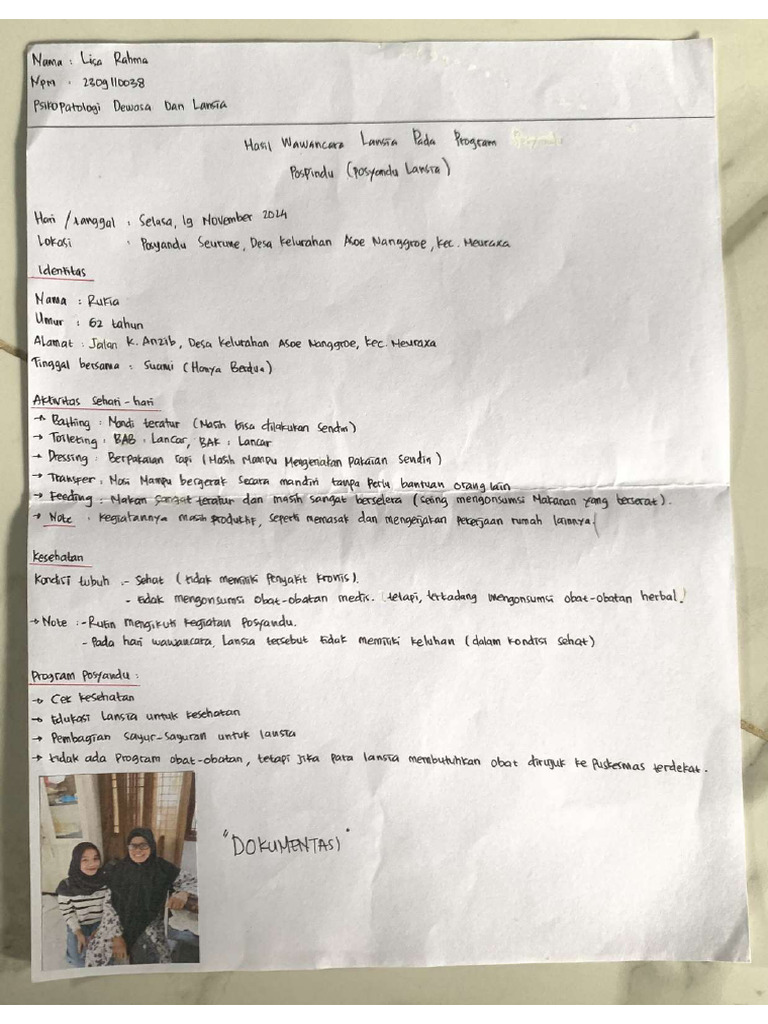 Nama : Lisa Rahma
Npm : 2309110038
Psikopatologi Dewasa Dan Lansia
Hasil Wawancara Lansia Pada Program
Pospindu (Posyandu Lansia)
Hari / tanggal : Selasa, 19 November 2024
Lokasi : Posyandu Seurune, Desa Kelurahan Asoe Nanggroe, Kec. Meuraxa
Identitas
Nama : Rukia
Umur : 62 tahun
Alamat : Jalan K. Anzib, Desa Kelurahan Asoe Nanggroe, Kec. Meuraxa
Tinggal bersama : Suami (Hanya Berdua)
Aktivitas Sehari-hari
→ Bathing : Mandi teratur (Masih bisa dilakukan Sendiri)
→ Toileting : BAB : Lancar, BAK : Lancar
→ Dressing : Berpakaian rapi (Masih Mampu Mengenakan Pakaian Sendiri)
→ Transfer : Masi Mampu bergerak Secara mandiri tanpa Perlu bantuan orang lain
→ Feeding : Makan sangat teratur dan masih sangat berselera (sering mengonsumsi Makanan yang berserat).
→ Note : Kegiatannya masih produktif, seperti memasak dan mengerjakan Pekerjaan rumah lainnya.
Kesehatan
Kondisi tubuh :- Sehat (tidak memiliki Penyakit Kronis).
- tidak mengonsumsi obat-obatan medis. (tetapi, terkadang mengonsumsi obat-obatan herbal.)
→ Note :- Rutin mengikuti kegiatan Posyandu.
- Pada hari wawancara, Lansia tersebut tidak memiliki keluhan (dalam kondisi sehat)
Program Posyandu :
→ Cek kesehatan
→ Edukasi Lansia untuk kesehatan
→ Pembagian sayur-sayuran untuk lansia
→ tidak ada Program obat-obatan, tetapi jika para lansia membutuhkan obat dirujuk ke Puskesmas terdekat.
"DOKUMENTASI"